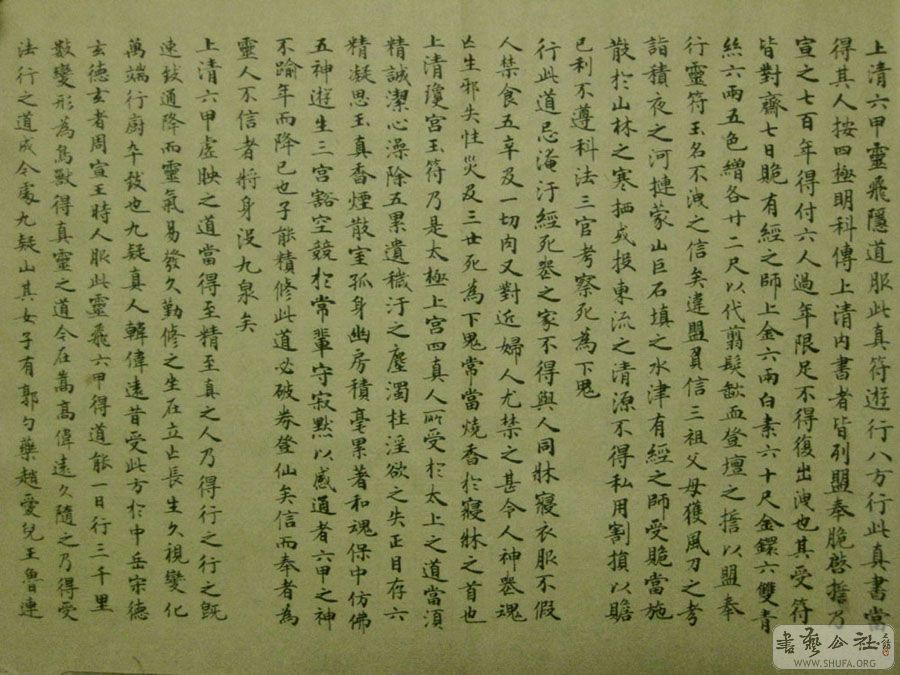 上清六甲靈飛隱道服此真符遊行八方行此真書當
得其人按四極明科傳上清內書者皆列盟奉脆啓擔乃
宣之七百年得付六人過年限足不得復出洩也其受符
皆對齋七日脆有經之師上金六兩白素六十尺金鐶六雙青
絲六兩五色繒各廿二尺以代翦髮歃血登壇之擔以盟奉
行靈符玉名不洩之信矣違盟負信三祖父母獲風刀之考
詣積夜之河摙蒙山巨石填之水津有經之師受脆當施
散於山林之寒栖或投東流之清源不得私用割損以贍
己利不遵科法三官考察死為下鬼
行此道忌淹汙經死喪之家不得與人同牀寢衣服不假
人禁食五辛及一切肉又對近婦人尤禁之甚令人神喪魂
亡生邪失性災及三世死為下鬼常當燒香於寢牀之首也
上清瓊宮玉符乃是太極上宮四真人所受於太上之道當須
精誠潔心澡除五累遺穢汙之塵濁杜淫欲之失正目存六
精凝思玉真香煙散室孤身幽房積毫累著和魂保中仿佛
五神遊生三宮豁空競於常輩守寂默以感通者六甲之神
不踰年而降己也子能精修此道必破券登仙矣信而奉者為
靈人不信者將身沒九泉矣
上清六甲虛映之道當得至精至真之人乃得行之行之既
速致通降而靈氣易發久勤修之坐在立亡長生久視變化
萬端行廚卒致也九疑真人韓偉遠昔受此方於中岳宋德
玄德玄者周宣王時人服此靈飛六甲得道能一日行三千里
數變形為鳥獸得真靈之道今在嵩高偉遠久隨之乃得受
法行之道成今處九疑山其女子有郭勺藥趙愛兒王魯連
書藝公社
WWW.SHUFA.ORG